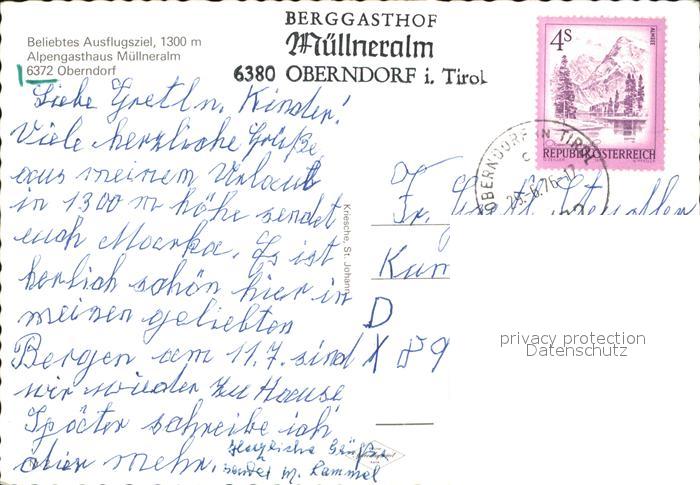 Beliebtes Ausflugsziel, 1300 m
Alpengasthaus Müllneralm
6372 Oberndorf
BERGGASTHOF
Müllneralm
6380 OBERNDORF i. Tirol
4S
ALMSEE
REPUBLIK ÖSTERREICH
OBERNDORF IN TIROL
29.-6.76-17
Liebe Gretln, Kinder!
Viele herzliche Grüße
aus meinem Urlaub
in 1300 m höhe sendet
euch Marka. Es ist
herlich schön hier in
meinen geliebten
Bergen am 11.7. sind
wir wieder zu Hause
Später schreibe ich
dier mehr.
Herzliche Grüße
sendet M. Rammel
Kriesche, St. Johann
Fr.
D
X 89
privacy protection
Datenschutz